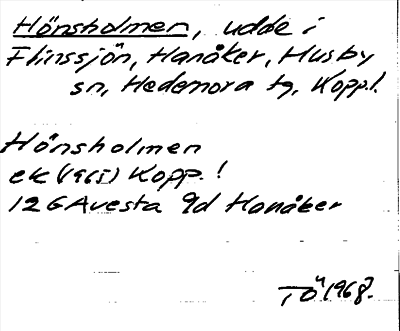 Hönsholmen, udde i
Flinssjön, Hanåker, Husby
sn, Hedemora tg, Kopp.l.
Hönsholmen
ek (1965) Kopp. !
12 G Avesta 9d Hanåker
TÖ 1968.